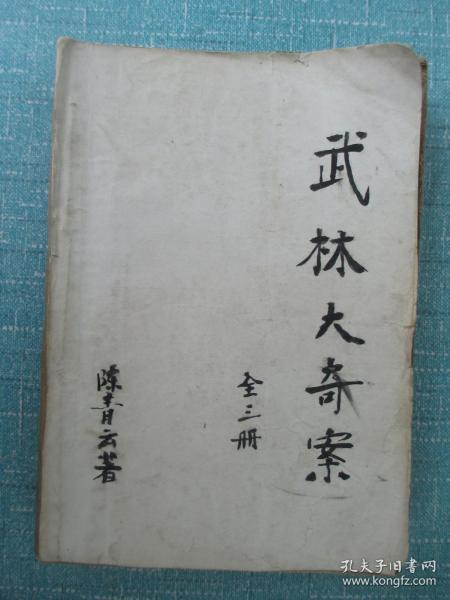 武林大奇案
全三册
陈青云著
孔夫子旧书网
www.kongfz.com